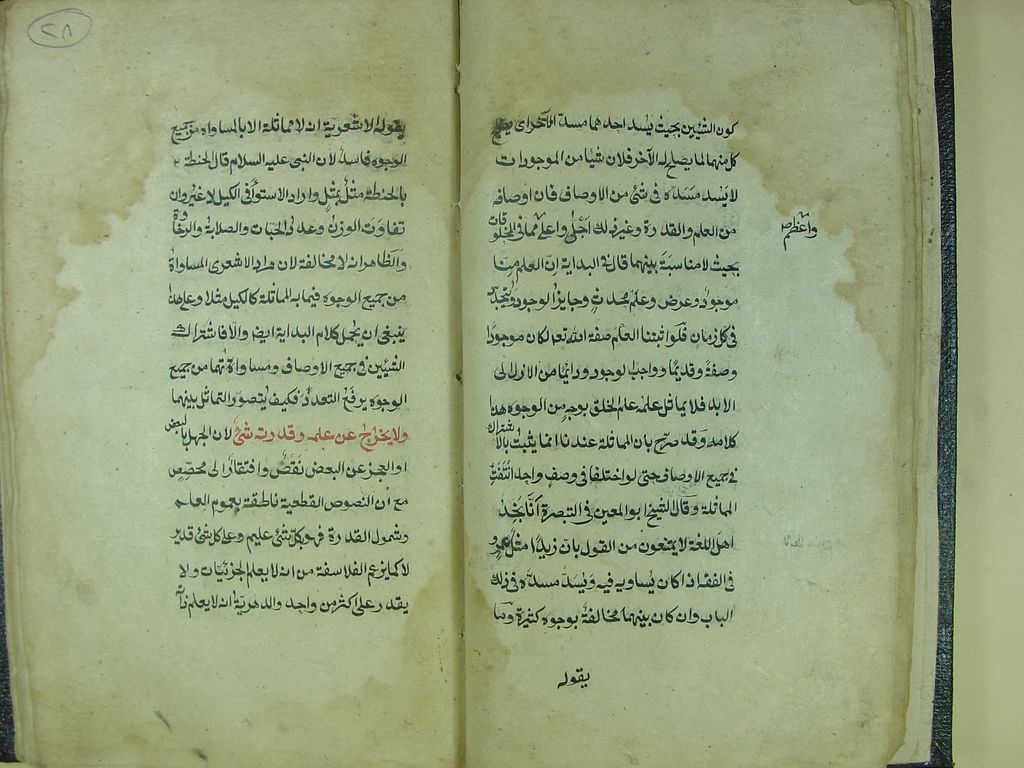 كون الشيئين بحيث يسد احدهما مسد الآخر اى يصلح
كل منهما لما يصلح له الآخر فلان شيأ من الموجودات
لا يسد مسده فى شئ من الاوصاف فان اوصافه
من العلم والقدرة وغير ذلك اجلّ واعلى مما فى المخلوقات
واعظم صح
بحيث لا مناسبة بينهما قال فى البداية ان العلم منا
موجود وعرض وعلم محدث وجايز الوجود ويتجدد
فى كل زمان فلو اثبتنا العلم صفة الله تعالى لكان موجودا
وصفة وقديما وواجب الوجود ودائما من الازل الى
الابد فلا يماثل علمه علم الخلق بوجه من الوجوه هذا
كلامه وقد صرح بان المماثلة عندنا انما يثبت بالاشتراك
فى جميع الاوصاف حتى لو اختلفا فى وصف واحد انتفت
المماثلة وقال الشيخ ابو المعين فى التبصرة انا نجد
اهل اللغة لا يمتنعون من القول بان زيدا مثل عمرو
فى الفقه اذا كان يساويه فيه ويسد مسده فى ذلك
الباب وان كان بينهما مخالفة بوجوه كثيرة وما
يقوله
٢٨
يقوله الاشعرية انه لا مماثلة الا بالمساواة من جميع
الوجوه فاسد لان النبى عليه السلام قال الحنطة
بالحنطة مثل بمثل واراد الاستواء فى الكيل لا غير وان
تفاوت الوزن وعدد الحبات والصلابة والرخاوة
والظاهر انه لا مخالفة لان مراد الاشعرى المساواة
من جميع الوجوه فيما به المماثلة كالكيل مثلا وعلى هذا
ينبغى ان يحمل كلام البداية ايضا والا فاشتراك
الشيئين فى جميع الاوصاف ومساواتهما من جميع
الوجوه يرفع التعدد فكيف يتصور التماثل بينهما
ولا يخرج عن علمه وقدرته شئ لان الجهل بالبعض
او العجز عن البعض نقص وافتقار الى مخصص
مع ان النصوص القطعية ناطقة بعموم العلم
وشمول القدرة فهو بكل شئ عليم وعلى كل شئ قدير
لا كما يزعم الفلاسفة من انه لا يعلم الجزئيات ولا
يقدر على اكثر من واحد والدهرية انه لا يعلم ذاته